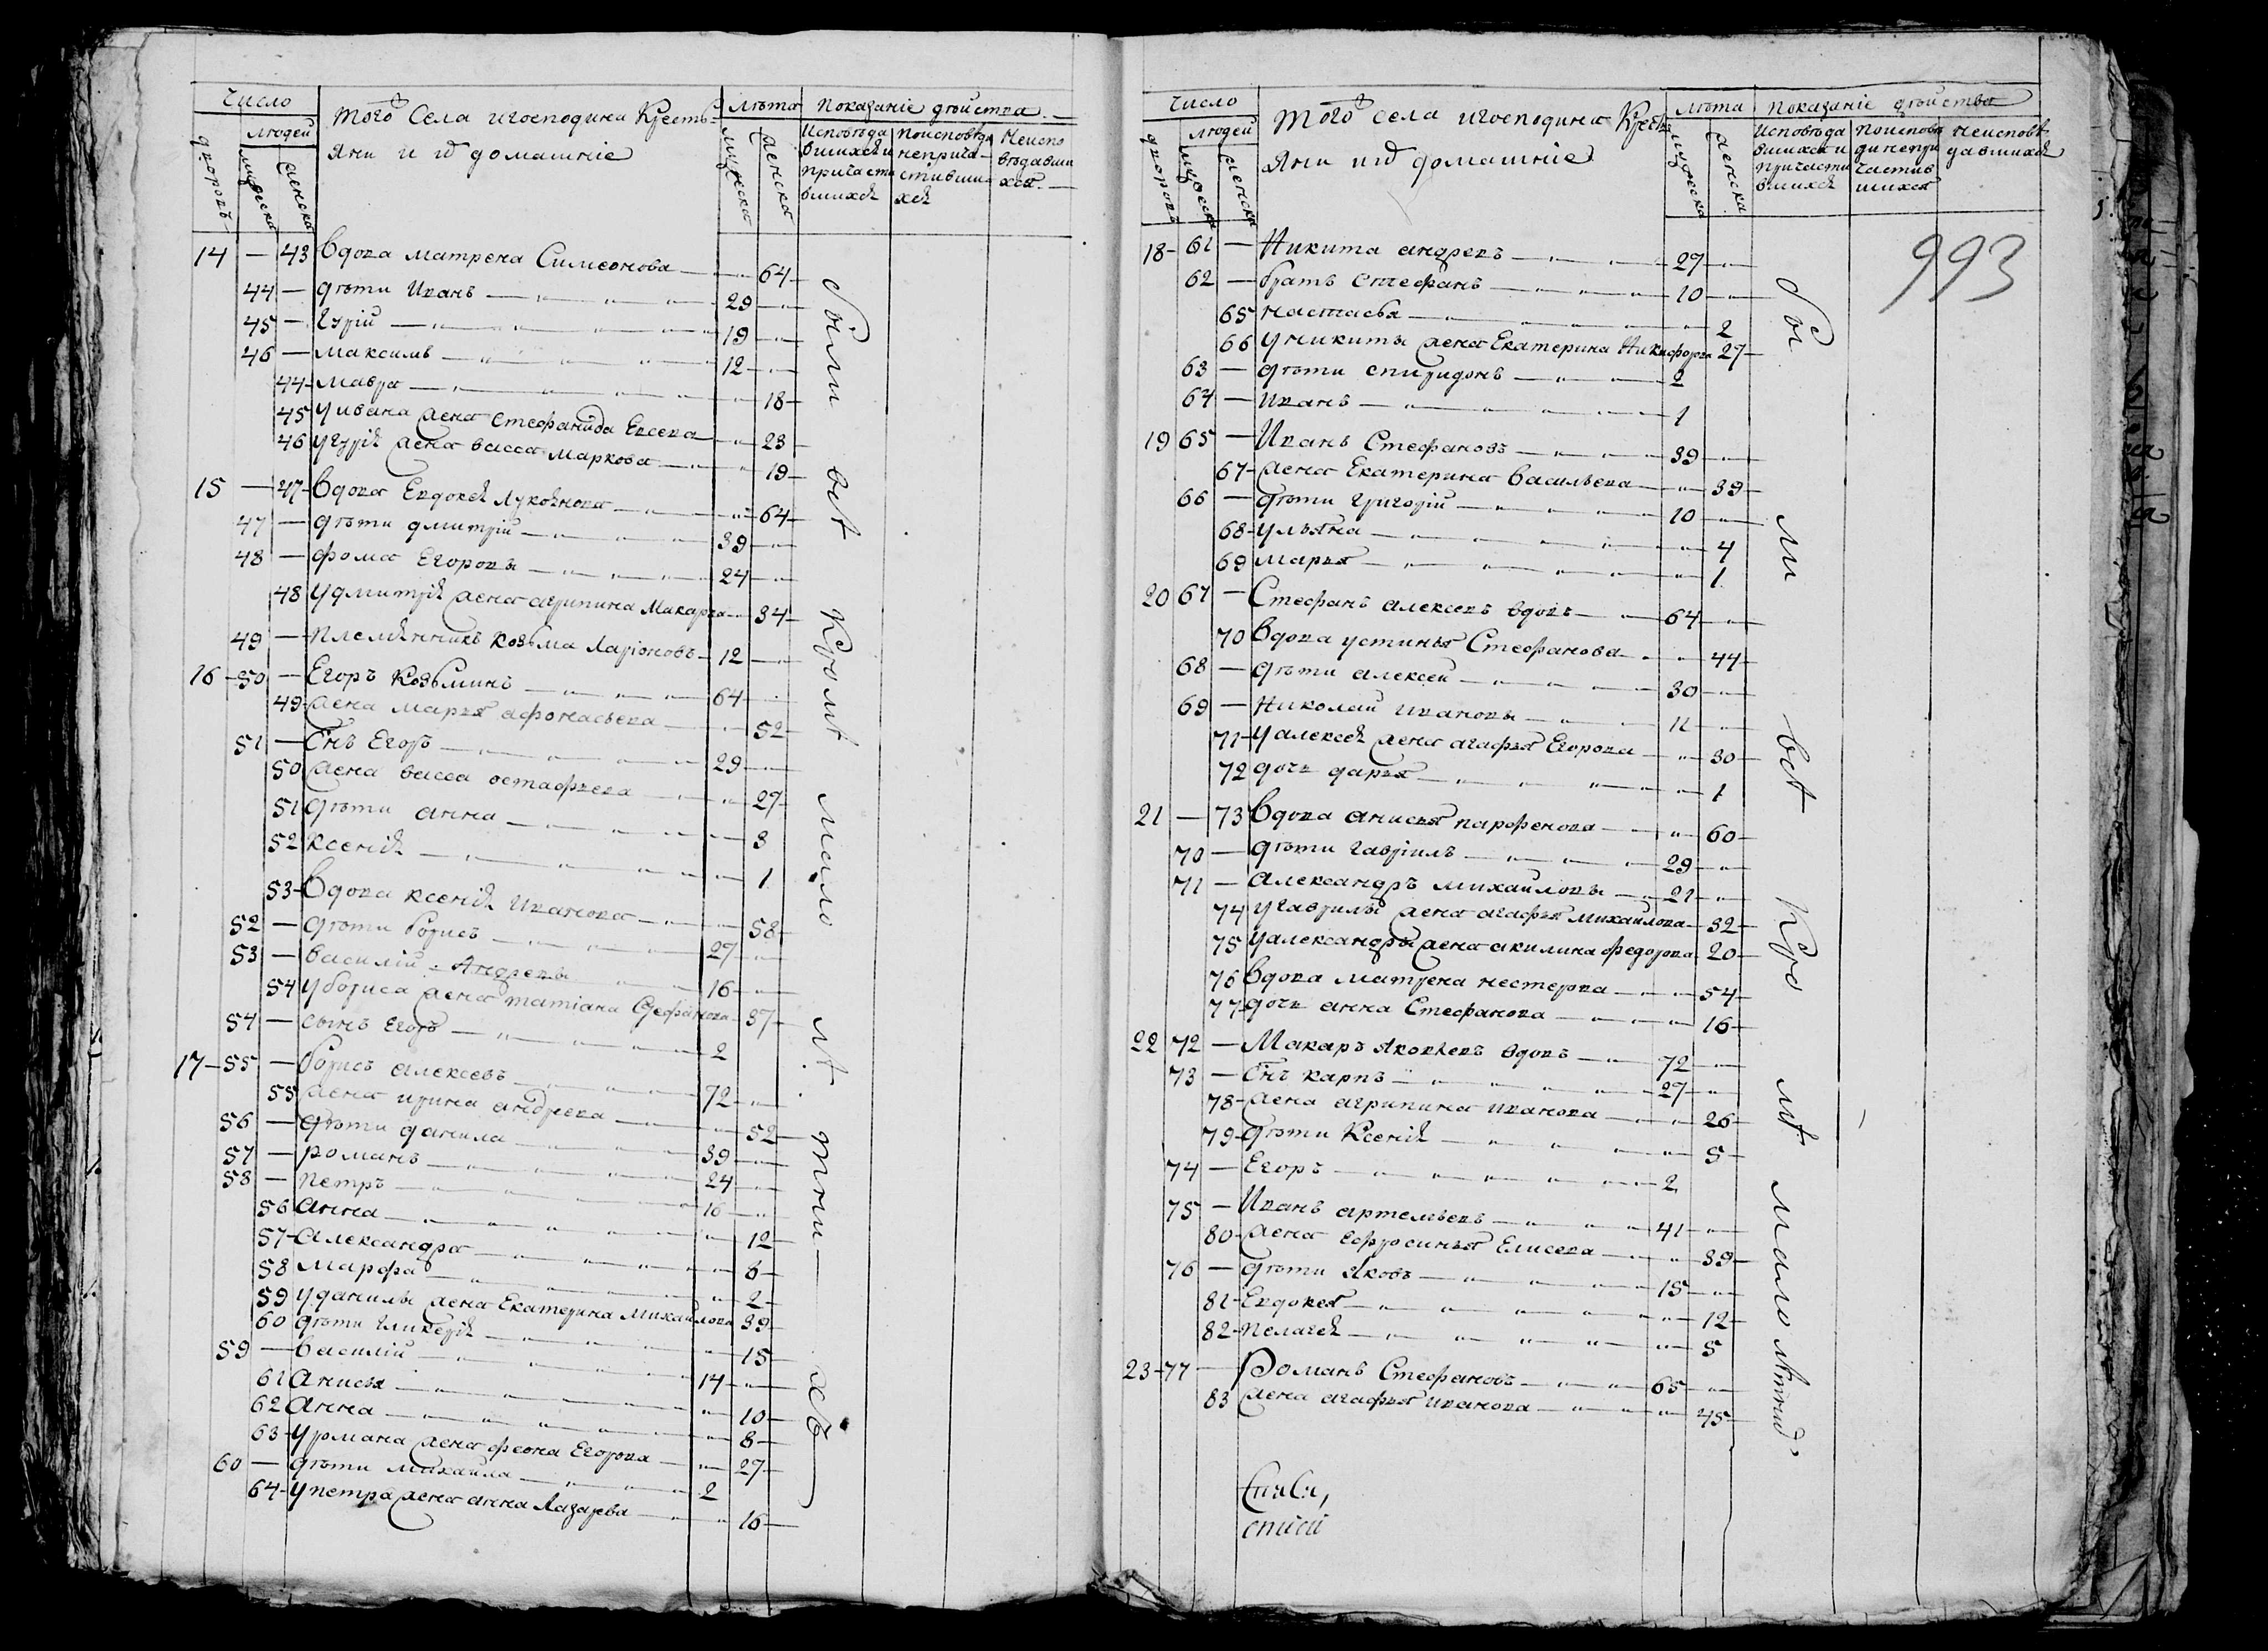 Число
людей
дворовъ
мужеска
женска
Того Села игосподина Кресть-
яни и ихъ домашніе
лѣта
мужеска
женска
Показаніе действа
Исповѣда
вшихся и
причасти
вшихся
поисповѣда
неприча-
стивши-
хся
Неиспо
вѣдавши
хся
14 — 43 Вдова матрена Симеонова 64
44 — дѣти Иванъ 29
45 — Гурій 19
46 — максимъ 12
44 мавра 18
45 у ивана жена стефанида Евсева 23
46 у гурія жена васса маркова 19
15 — 47 Вдова Евдокея лукоянова 64
47 — дѣти дмитрій 39
48 — фома Егоровы 24
48 У дмитрія жена агрипина Макарова 34
49 — племянникъ козьма ларіоновъ 12
16 50 — Егоръ Козьминъ 64
49 жена марья афонасьева 52
51 — Снъ Егоръ 29
50 жена васса остафьева 27
51 дѣти анна 3
52 ксенія 1
53 Вдова ксенія Иванова 58
52 — дѣти борисъ 27
53 — василій Андревы 16
54 у бориса жена татіана Стефанова 37
54 — сынъ Егоръ 2
17 55 — борисъ алексеевъ 72
55 жена ирина андрева 52
56 — дѣти данила 39
57 — романъ 24
58 — петръ 16
56 анна 12
57 александра 6
58 марфа 2
59 у данилы жена Екатерина Михайлова 39
60 дѣти гликерія 15
59 — василій 14
61 анисья 10
62 анна 8
63 у романа жена феона Егорова 27
60 — дѣти михаила 2
64 у петра жена анна Лазарева 16
были всѣ Кромѣ мало лѣтни хъ
Число
людей
дворовъ
мужеска
женска
Того села игосподина Кресть
яни ихъ домашніе
лѣта
мужеска
женска
Показаніе действа
Исповѣда
вшихся и
причасти
вшихся
поисповѣ
ди непри
частив
шихся
неисповѣ
давшихся
993
18 61 — Никита андревъ 27
62 — братъ стефанъ 10
65 настасья 2
66 у никиты жена Екатерина Никифорова 27
63 — дѣти спиридонъ 2
64 — Иванъ 1
19 65 — Иванъ Стефановъ 39
67 жена Екатерина васильева 39
66 — дѣти григорій 10
68 ульяна 4
69 марья 1
20 67 — Стефанъ алексевъ вдовъ 64
70 вдова устинья Стефанова 44
68 — дѣти алексей 30
69 — Николай ивановы 11
71 у алексея жена агафья Егорова 30
72 дочь дарья 1
21 — 73 Вдова анисья парфенова 60
70 — дѣти гавріилъ 29
71 — александръ михайловы 21
74 у гаврилы жена агафья михайлова 32
75 у александры жена акилина федорова 20
76 Вдова матрена нестерова 54
77 дочь анна Стефанова 16
22 72 — Макаръ яковлевъ вдовъ 72
73 — Снъ карпъ 27
78 жена агрипина иванова 26
79 дѣти Ксенія 5
74 — Егоръ 2
75 — Иванъ артемьевъ 41
80 жена ефросинья Елисева 39
76 — дѣти яковъ 15
81 Евдокея 12
82 пелагея 5
23 77 — Романъ Стефановъ 65
83 жена агафья иванова 45
бы ли всѣ Кро мѣ мало лѣтнихъ